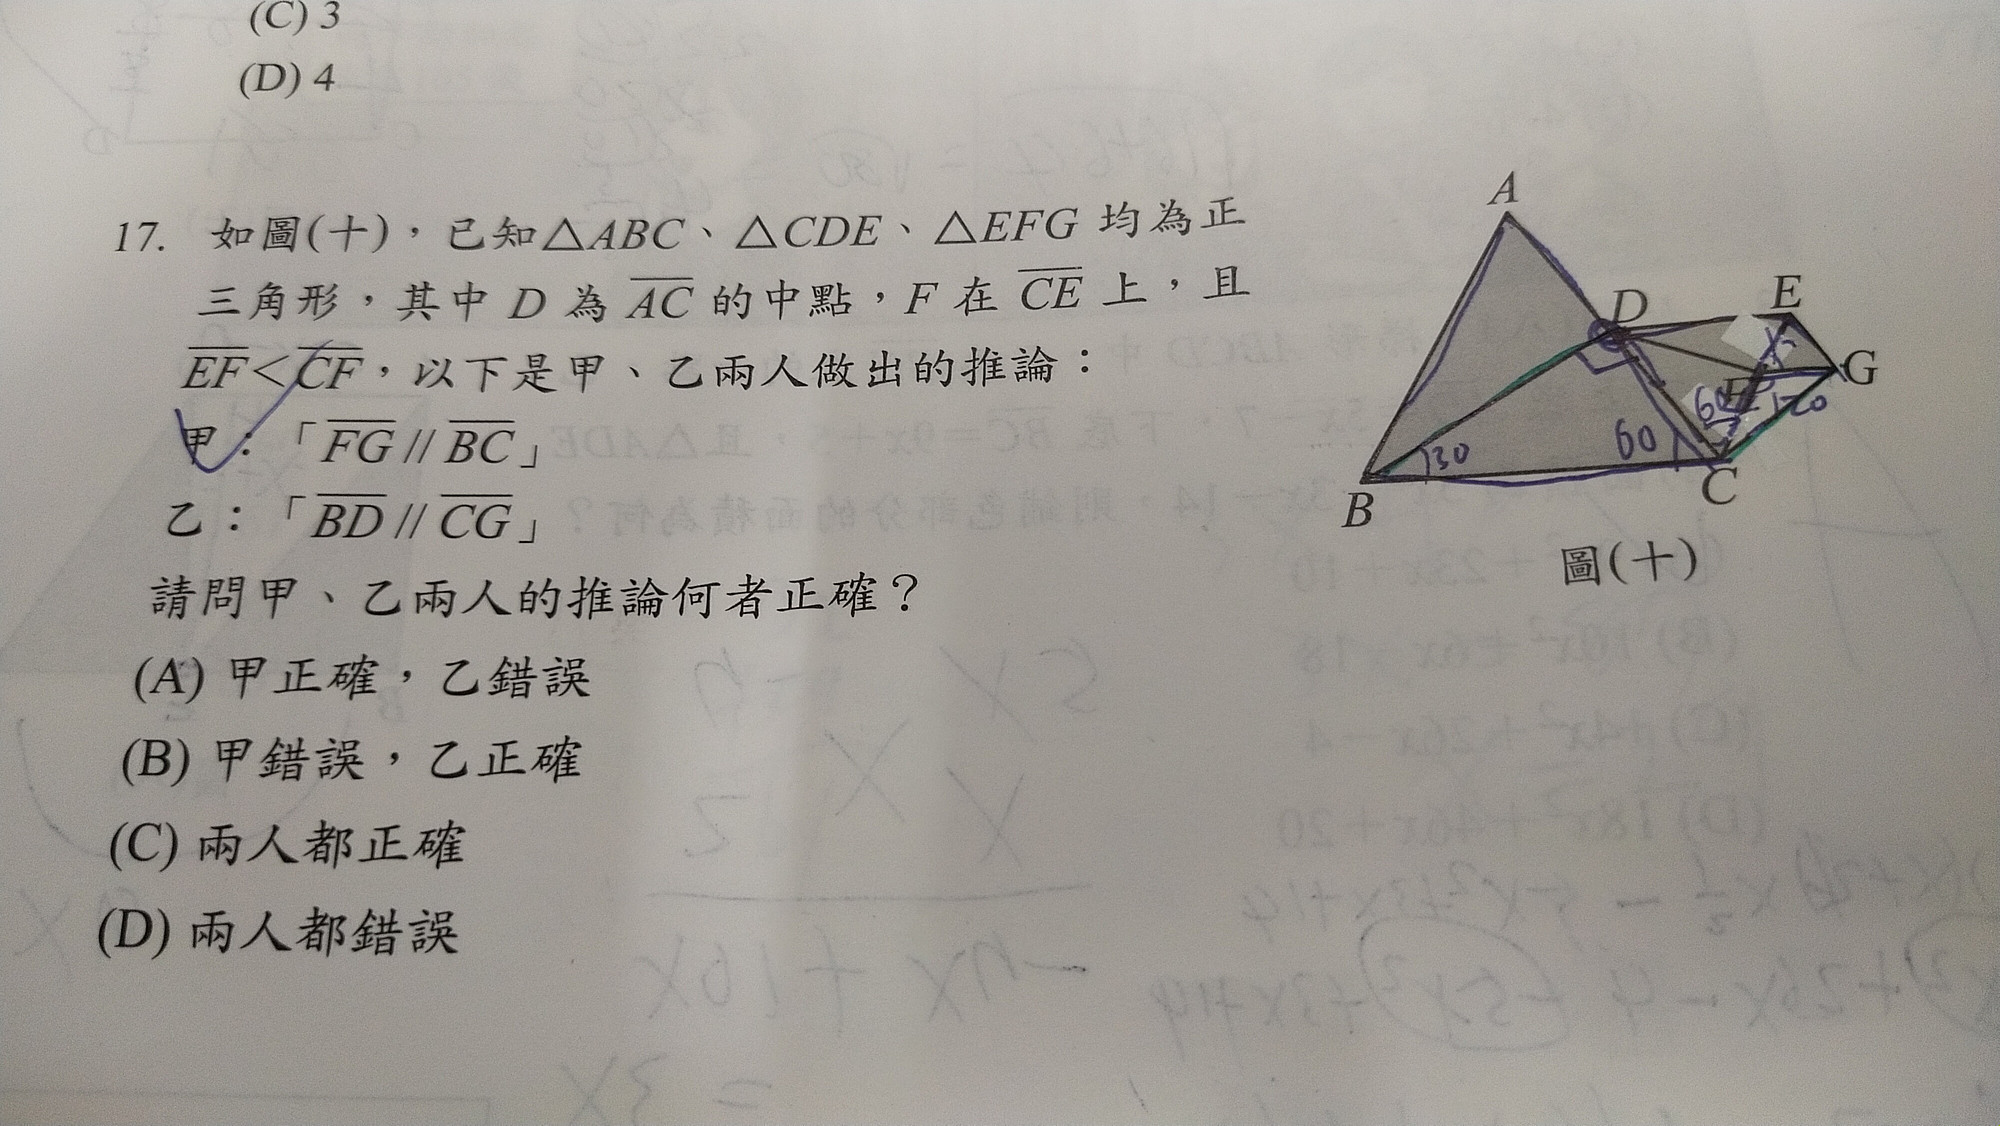 (C) 3
(D) 4
17. 如圖(十)，已知△ABC、△CDE、△EFG 均為正
三角形，其中 D 為 AC 的中點，F 在 CE 上，且
EF＜CF，以下是甲、乙兩人做出的推論：
甲：「FG // BC」
乙：「BD // CG」
請問甲、乙兩人的推論何者正確？
(A) 甲正確，乙錯誤
(B) 甲錯誤，乙正確
(C) 兩人都正確
(D) 兩人都錯誤
A
D
E
G
F
60
120
30
60
B
C
圖(十)